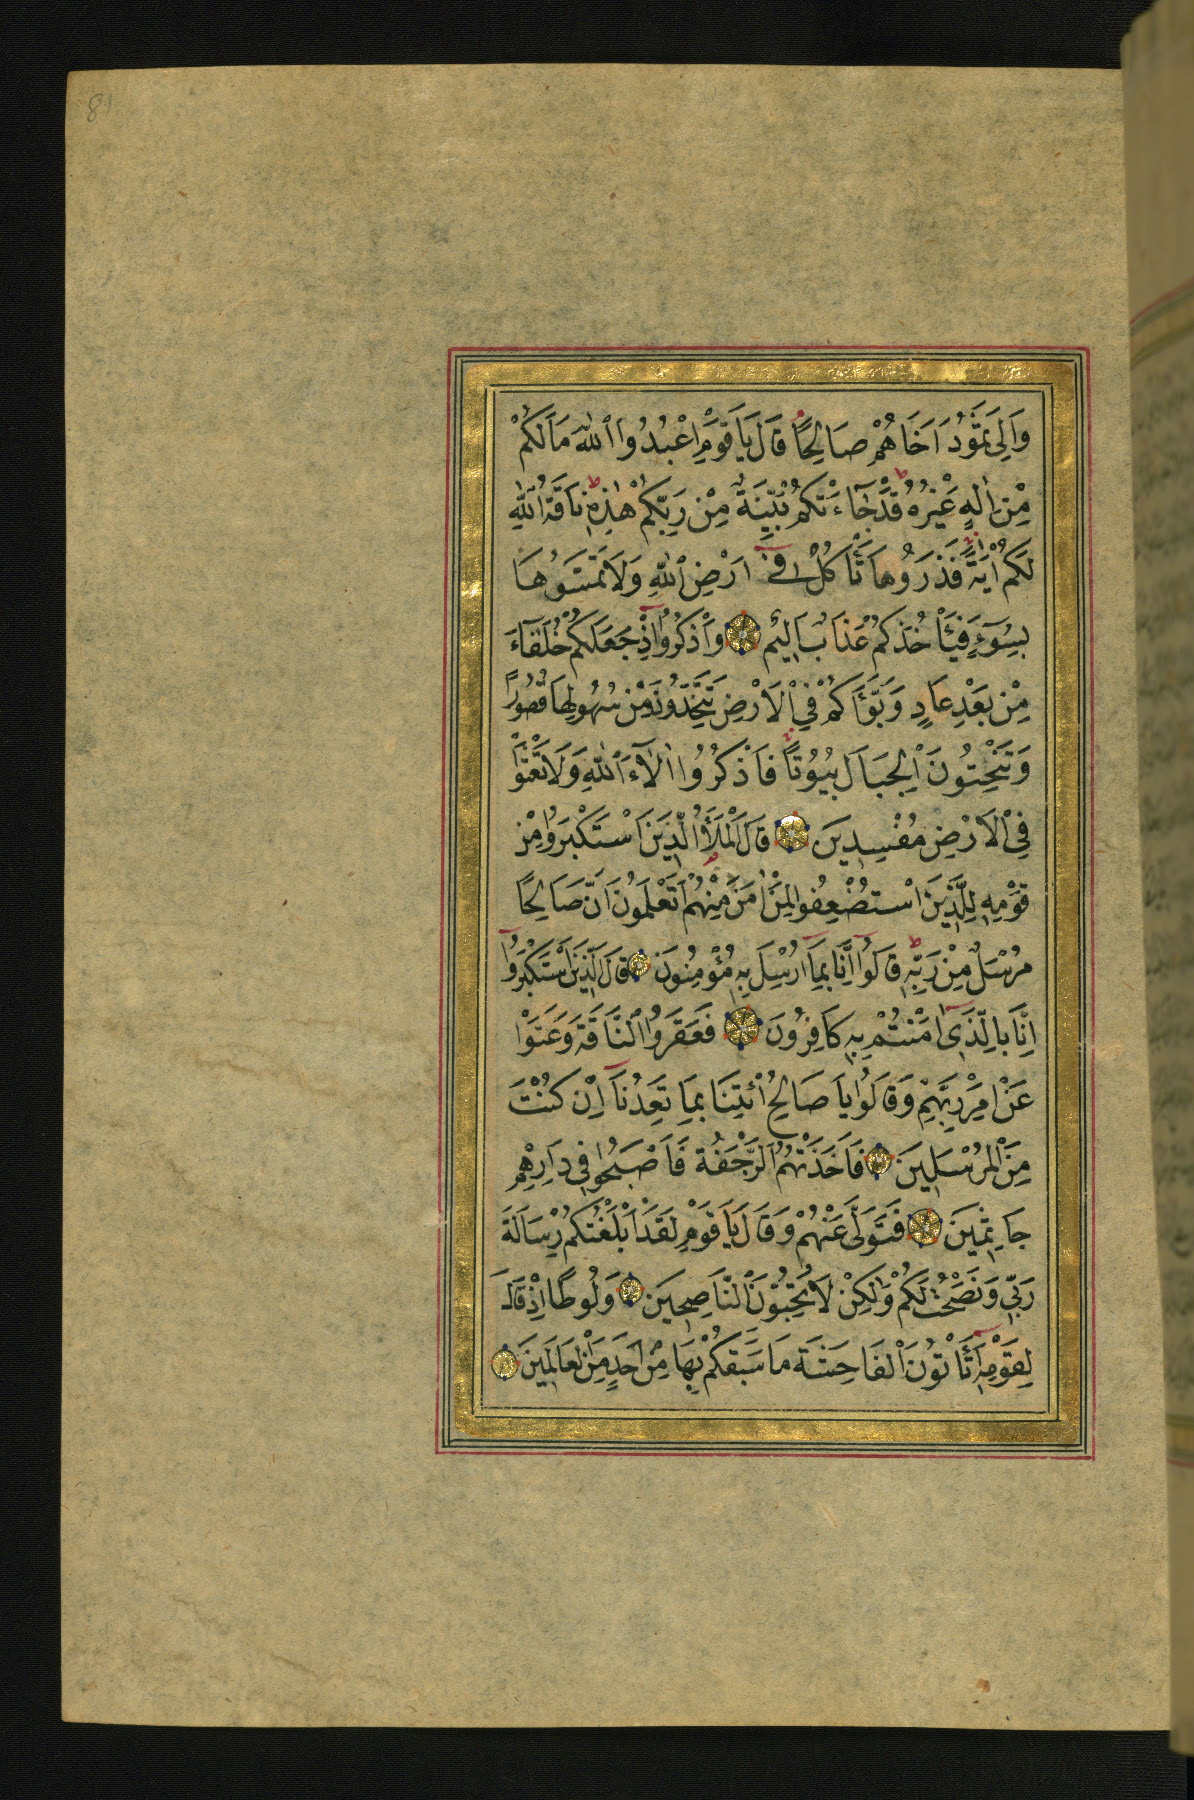 81
وَاِلٰى ثَمُودَ اَخَاهُمْ صَالِحًا قَالَ يَا قَوْمِ اعْبُدُوا اللّٰهَ مَا لَكُمْ
مِنْ اِلٰهٍ غَيْرُهُ قَدْ جَاءَتْكُمْ بَيِّنَةٌ مِنْ رَبِّكُمْ هٰذِهٖ نَاقَةُ اللّٰهِ
لَكُمْ اٰيَةً فَذَرُوهَا تَأْكُلْ فٖى اَرْضِ اللّٰهِ وَلَا تَمَسُّوهَا
بِسُوءٍ فَيَأْخُذَكُمْ عَذَابٌ اَلٖيمٌ وَاذْكُرُوا اِذْ جَعَلَكُمْ خُلَفَاءَ
مِنْ بَعْدِ عَادٍ وَبَوَّأَكُمْ فِى الْاَرْضِ تَتَّخِذُونَ مِنْ سُهُولِهَا قُصُورًا
وَتَنْحِتُونَ الْجِبَالَ بُيُوتًا فَاذْكُرُوا اٰلَاءَ اللّٰهِ وَلَا تَعْثَوْا
فِى الْاَرْضِ مُفْسِدٖينَ قَالَ الْمَلَأُ الَّذٖينَ اسْتَكْبَرُوا مِنْ
قَوْمِهٖ لِلَّذٖينَ اسْتُضْعِفُوا لِمَنْ اٰمَنَ مِنْهُمْ اَتَعْلَمُونَ اَنَّ صَالِحًا
مُرْسَلٌ مِنْ رَبِّهٖ قَالُوا اِنَّا بِمَا اُرْسِلَ بِهٖ مُؤْمِنُونَ قَالَ الَّذٖينَ اسْتَكْبَرُوا
اِنَّا بِالَّذٖى اٰمَنْتُمْ بِهٖ كَافِرُونَ فَعَقَرُوا النَّاقَةَ وَعَتَوْا
عَنْ اَمْرِ رَبِّهِمْ وَقَالُوا يَا صَالِحُ ائْتِنَا بِمَا تَعِدُنَا اِنْ كُنْتَ
مِنَ الْمُرْسَلٖينَ فَاَخَذَتْهُمُ الرَّجْفَةُ فَاَصْبَحُوا فٖى دَارِهِمْ
جَاثِمٖينَ فَتَوَلّٰى عَنْهُمْ وَقَالَ يَا قَوْمِ لَقَدْ اَبْلَغْتُكُمْ رِسَالَةَ
رَبّٖى وَنَصَحْتُ لَكُمْ وَلٰكِنْ لَا تُحِبُّونَ النَّاصِحٖينَ وَلُوطًا اِذْ قَالَ
لِقَوْمِهٖ اَتَأْتُونَ الْفَاحِشَةَ مَا سَبَقَكُمْ بِهَا مِنْ اَحَدٍ مِنَ الْعَالَمٖينَ